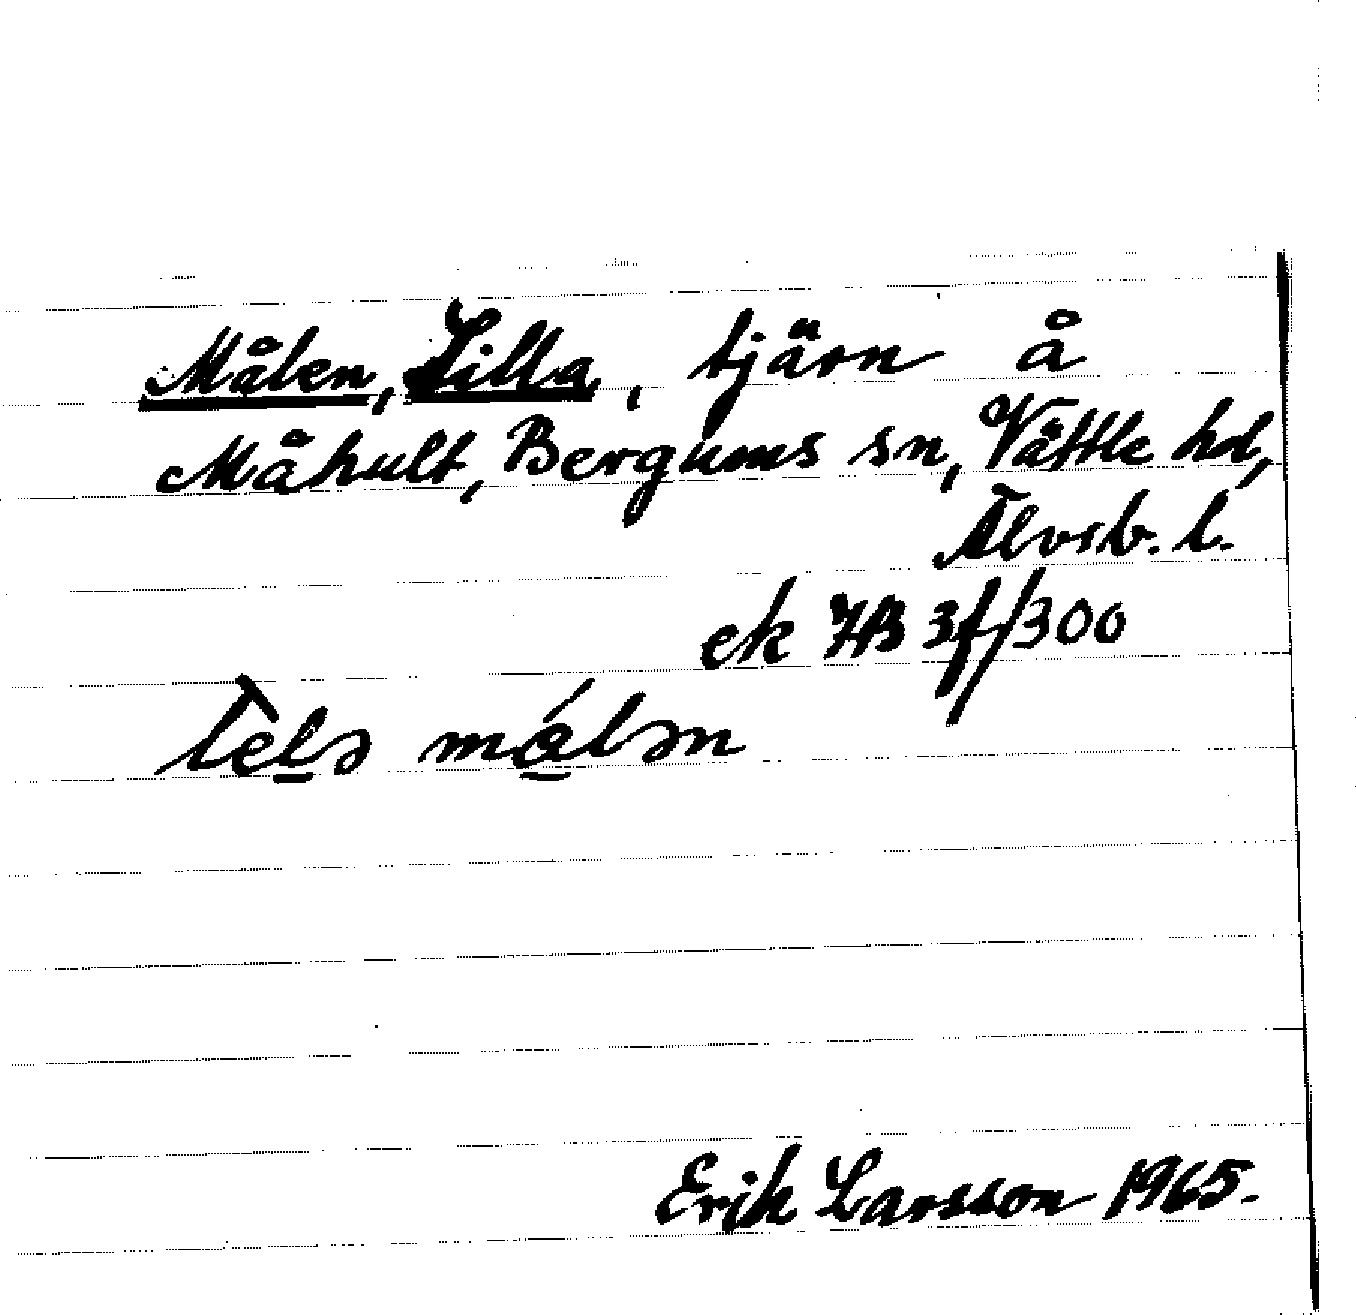 Målen, Lilla, tjärn å
Måhult, Bergums sn, Vättle hd,
Älvsb. l.
ek 7B 3f/300
målən
Erik Larsson 1965.